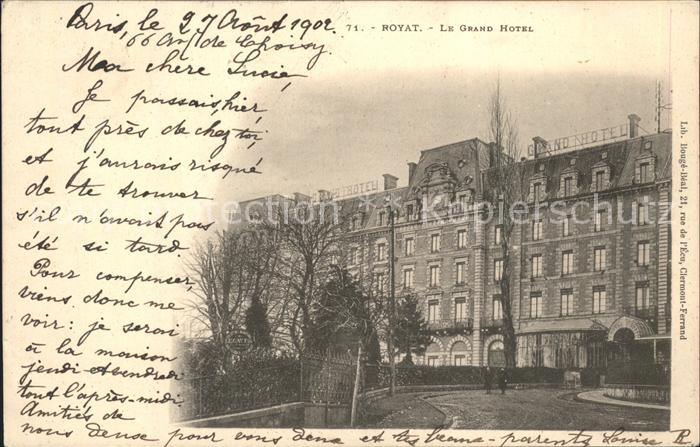 Paris, le 27 Août 1902.
66 Av. de Choisy.
71. - ROYAT. - LE GRAND HOTEL
Ma chère Lucie,
Je passais, hier
tout près de chez toi,
et j'aurais risqué
de te trouver
s'il n'avait pas
été si tard.
Pour compenser,
viens donc me
voir: je serai
à la maison
jeudi et vendredi
tout l'après-midi
Amitiés de
nous deux pour vous deux et tes beaux-parents Louise
GRAND HOTEL
HOTEL
Lib. Bougé-Béal, 21, rue de l'Écu, Clermont-Ferrand
Collection Kopierschutz